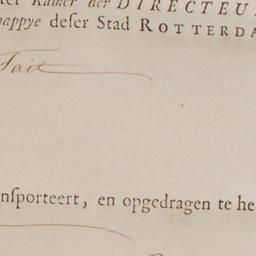 Kamer der DIRECTEU
appye deser Stad ROTTERDA
Fait
nsporteert, en opgedragen te he